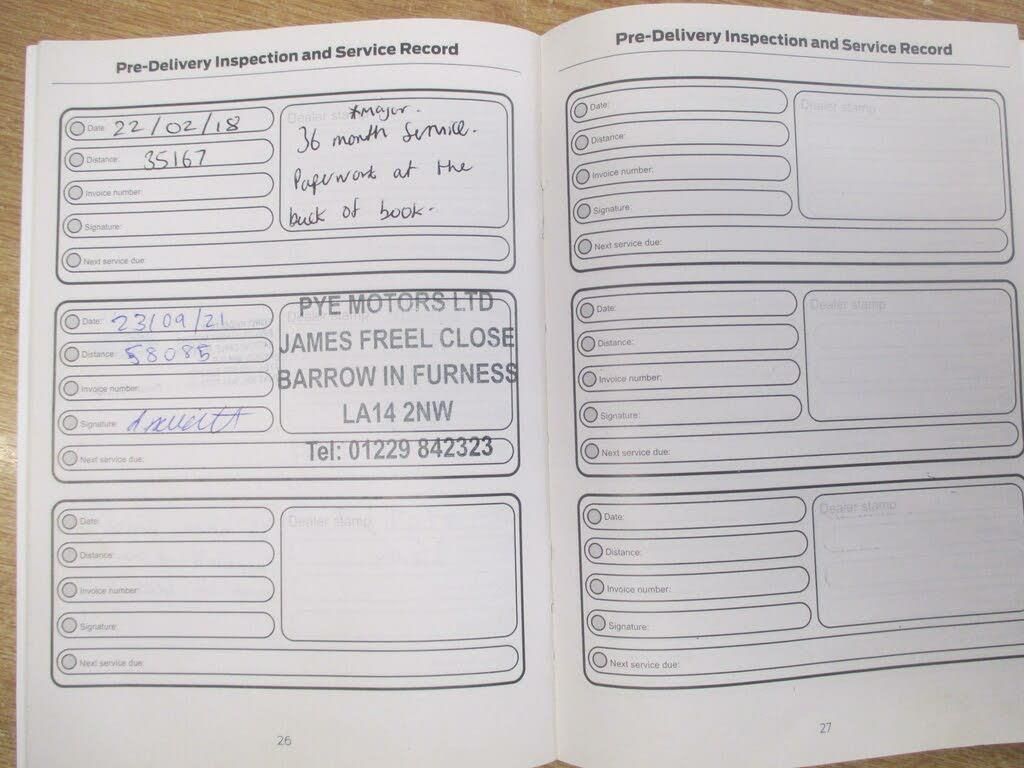 Pre-Delivery Inspection and Service Record
Date: 22/02/18
Distance: 35167
Invoice number:
Signature:
Next service due:
Dealer stamp
*Major.
36 month Service.
Paperwork at the
back of book.
Date: 23/09/21
Distance: 58085
Invoice number:
Signature:
Next service due:
PYE MOTORS LTD
JAMES FREEL CLOSE
BARROW IN FURNESS
LA14 2NW
Tel: 01229 842323
Date:
Distance:
Invoice number:
Signature:
Next service due:
Dealer stamp
26
Pre-Delivery Inspection and Service Record
Date:
Distance:
Invoice number:
Signature:
Next service due:
Dealer stamp
Date:
Distance:
Invoice number:
Signature:
Next service due:
Dealer stamp
Date:
Distance:
Invoice number:
Signature:
Next service due:
Dealer stamp
27